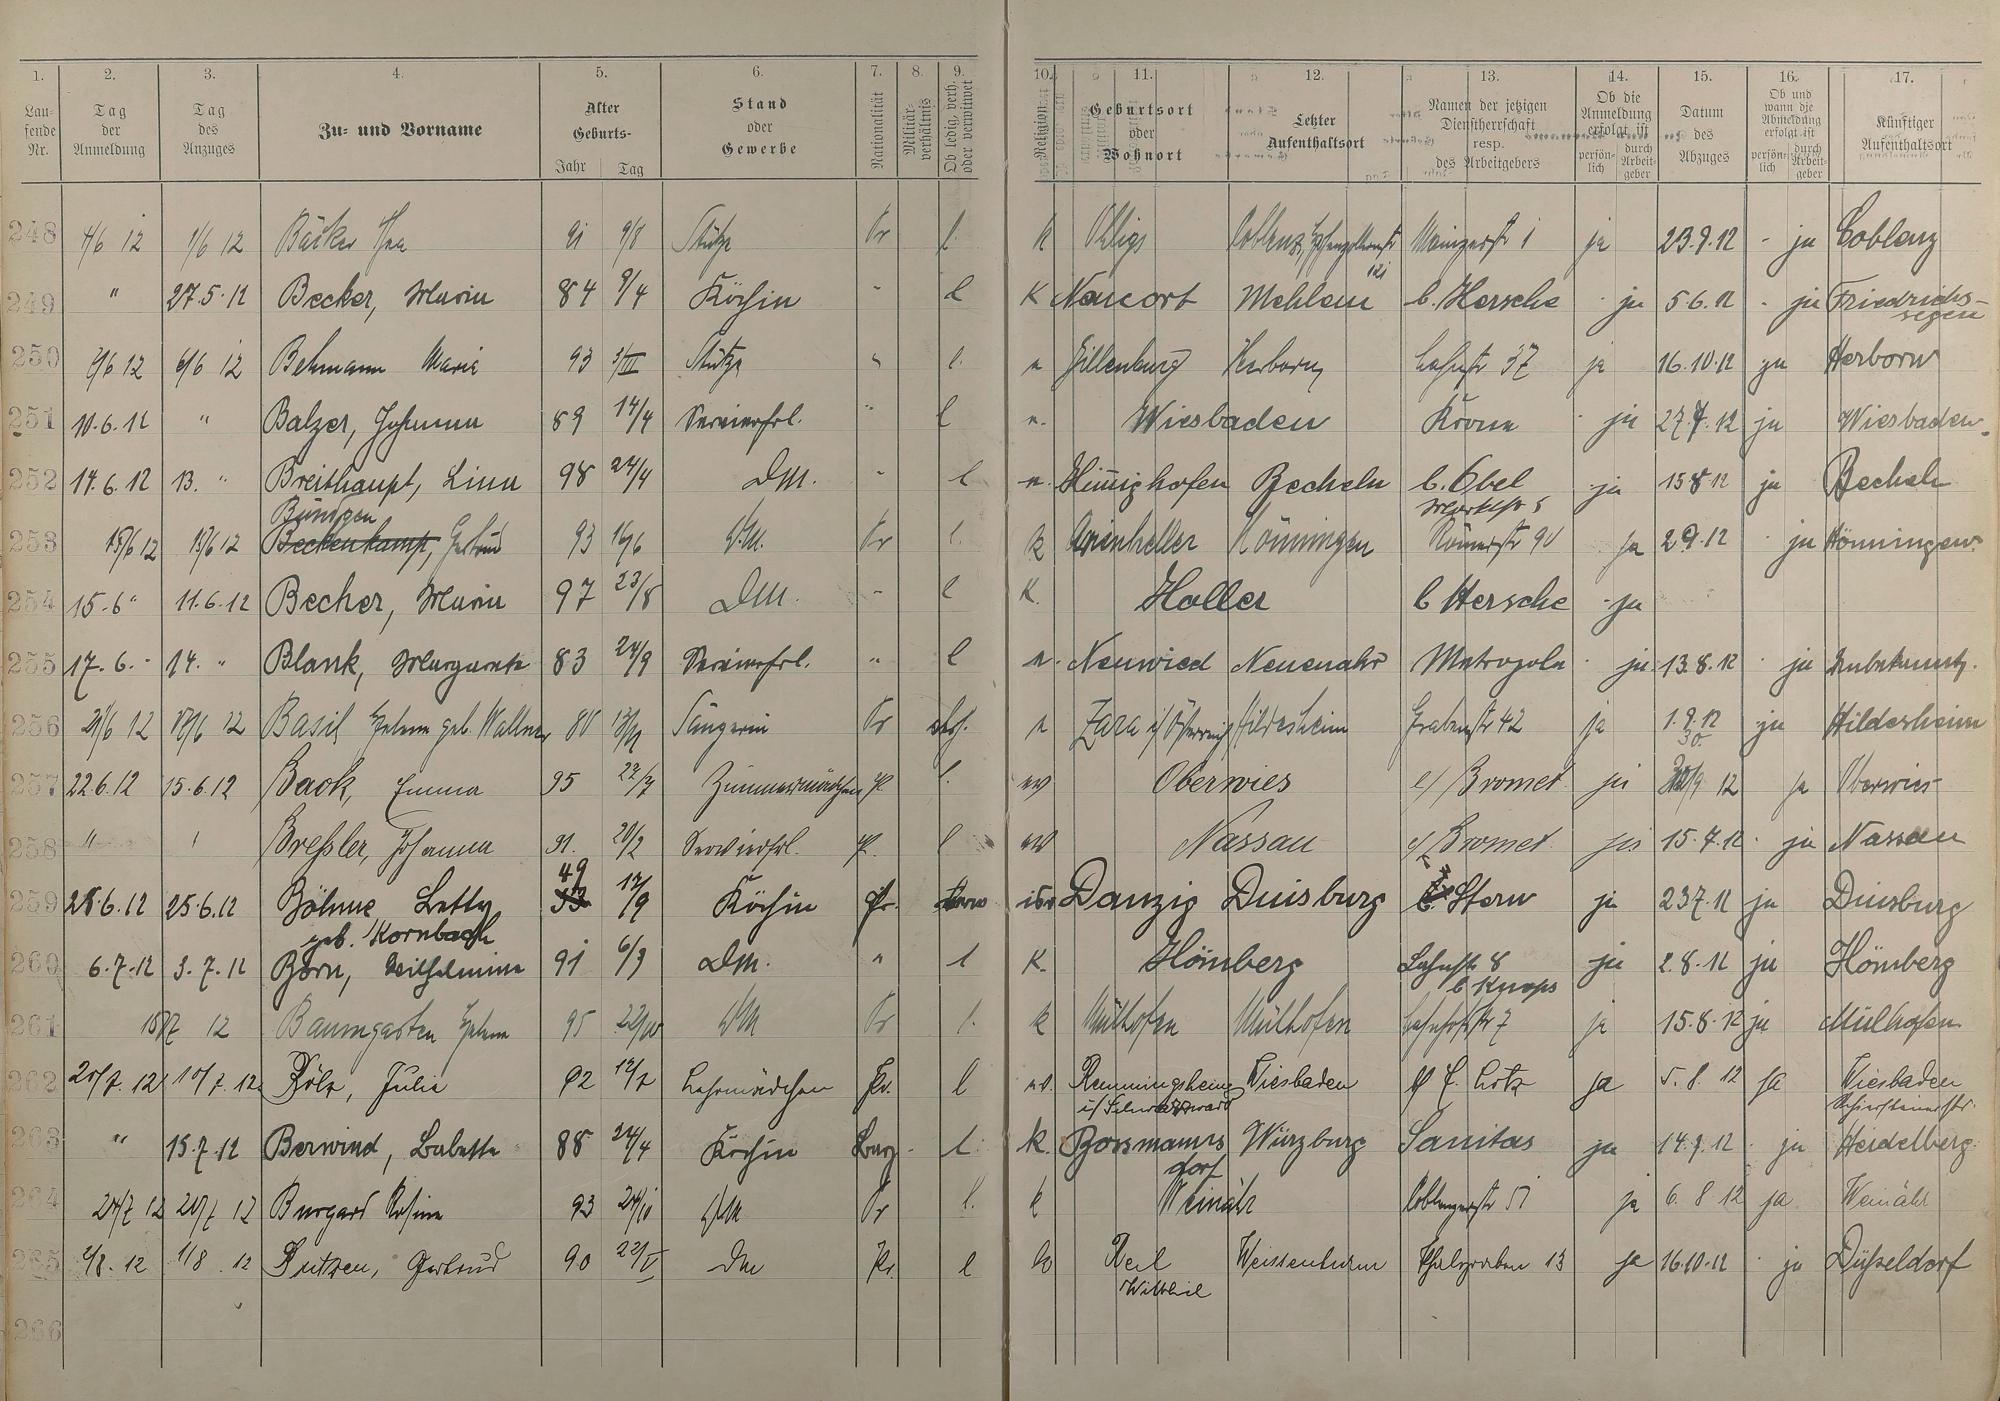 1. 2. 3. 4. 5. 6. 7. 8. 9. 10. 11. 12. 13. 14. 15. 16. 17.
Laufende Nr. Tag der Anmeldung Tag des Anzuges Zu- und Vorname Alter Geburts- Jahr Tag Stand oder Gewerbe Nationalität Militärverhältnis Ob ledig, verh. oder verwitwet Religion Geburtsort oder Wohnort Letzter Aufenthaltsort Namen der jetzigen Dienstherrschaft resp. des Arbeitgebers Ob die Anmeldung erfolgt ist persönlich durch Arbeitgeber Datum des Abzuges Ob und wann die Abmeldung erfolgt ist persönlich durch Arbeitgeber Künftiger Aufenthaltsort
248 4/6 12 1/6 12 Bäcker 91 9/8 Stütze Pr l. k Ohligs Coblenz, Hohenzollernstr 121 Mainzerstr 1 ja 23.9.12 - ja Coblenz
249 " 27.5.12 Becker, Maria 84 9/4 Köchin " l K Neucort Mehlem b. Hersche - ja 5.6.12 - ja Friedrichs-
segen
250 6/6 12 Behmann Maria 93 3/III Stütze " l. Dillenburg Herborn Lahnstr 37 ja 16.10.12 ja Herborn
251 10.6.12 " Balzer, Johanna 89 14/4 Servierfrl. " l Wiesbaden Krone - ja 27.7.12 ja Wiesbaden.
252 14.6.12 13. " Breithaupt, Lina 98 24/4 DM. " l Himmighofen Becheln b. Obel
Marktstr 5 ja 15 8 12 ja Becheln
253 15/6 12 13/6 12 Büntgen
Beckenkamp, Gertrud 93 16/6 D.M. Pr l. k Arienheller Hönningen Römerstr 90 ja 2 9.12 - ja Hönningen
254 15.6 " 11.6.12 Becher, Maria 97 23/8 DM. " l K. Holler b Hersche - ja
255 17. 6. " 14. " Blank, Margarete 83 24/9 Servierfrl. " l Neuwied Neuenahr Metropole - ja 13.8.12 - ja Unbekannt.
256 21/6 12 17/6 12 Basil Helene geb. Wallner 80 Sängerin Pr Zara i/ Österreich Hildesheim Grabenstr 42 ja 1.9.12
30. ja Hildesheim
257 22.6.12 15.6.12 Back, Emma 95 22/7 Zimmermädchen l. Oberwies c/ Bromet ja 12 ja Oberwies
258 " " Breßler, Johanna 91. 20/2 Servierfrl. l Nassau c/ Bromet ja 15.7.12 - ja Nassau
259 28.6.12 25.6.12 Böhme Betty
geb. Kornbach 49 17/9 Köchin Pr. isr Danzig Duisburg Stern ja 23 7.12 ja Duisburg
260 6.7.12 3.7.12 Born, Wilhelmine 91 6/3 DM. " l K. Hömberg Lahnstr 8
b Knops ja 2.8.12 ja Hömberg
261 15/7 12 Baumgarten Helene 95 DM Pr l. k Mülhofen Mülhofen Bahnhofstr 7 ja 15.8.12 ja Mülhofen
262 20/7. 12 10/7. 12 Bölz, Julie 92 12/7 Lehrmädchen Pr. l Remmingsheim
i/ Schwarzwald Wiesbaden E. Lotz ja 5. 8. 12 ja Wiesbaden
Schiersteinerstr.
263 " 15.7.12 Berwind, Babette 88 24/4 Köchin l. k. Bossmanns
dorf Würzburg Sanitas ja 14.9.12 - ja Heidelberg
264 24/7 12 20/7 12 Burgard Rosina 93 DM Pr l. k Weinähr Coblenzerstr 51 ja 6. 8 12 ja Weinähr
265 2/8. 12 1/8. 12 Butzen, Gertrud 90 22/V DM Pr. l Reil
Wittlich Weissenturm Thalgraben 13 ja 16.10.12 - ja Düsseldorf
266